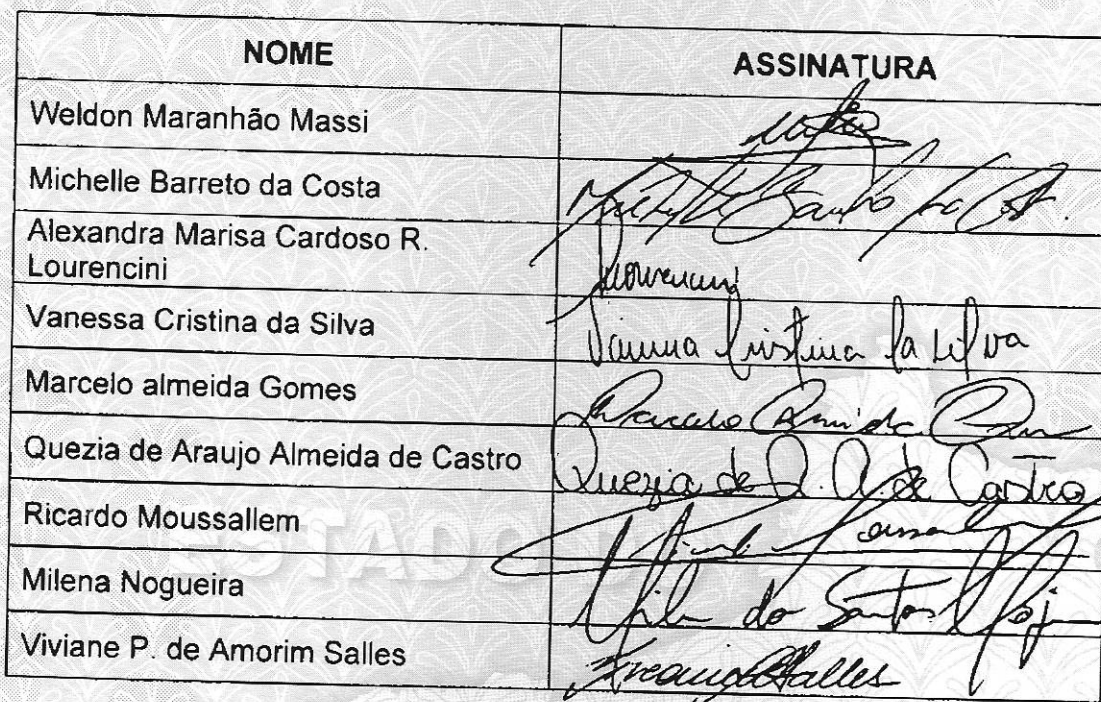 NOME ASSINATURA
Weldon Maranhão Massi
Michelle Barreto da Costa
Alexandra Marisa Cardoso R.
Lourencini Lourencini
Vanessa Cristina da Silva Vanessa Cristina da Silva
Marcelo almeida Gomes Marcelo Almeida
Quezia de Araujo Almeida de Castro Quezia de A. A. de Castro
Ricardo Moussallem
ESTADO DO
Milena Nogueira do Santos
Viviane P. de Amorim Salles Salles